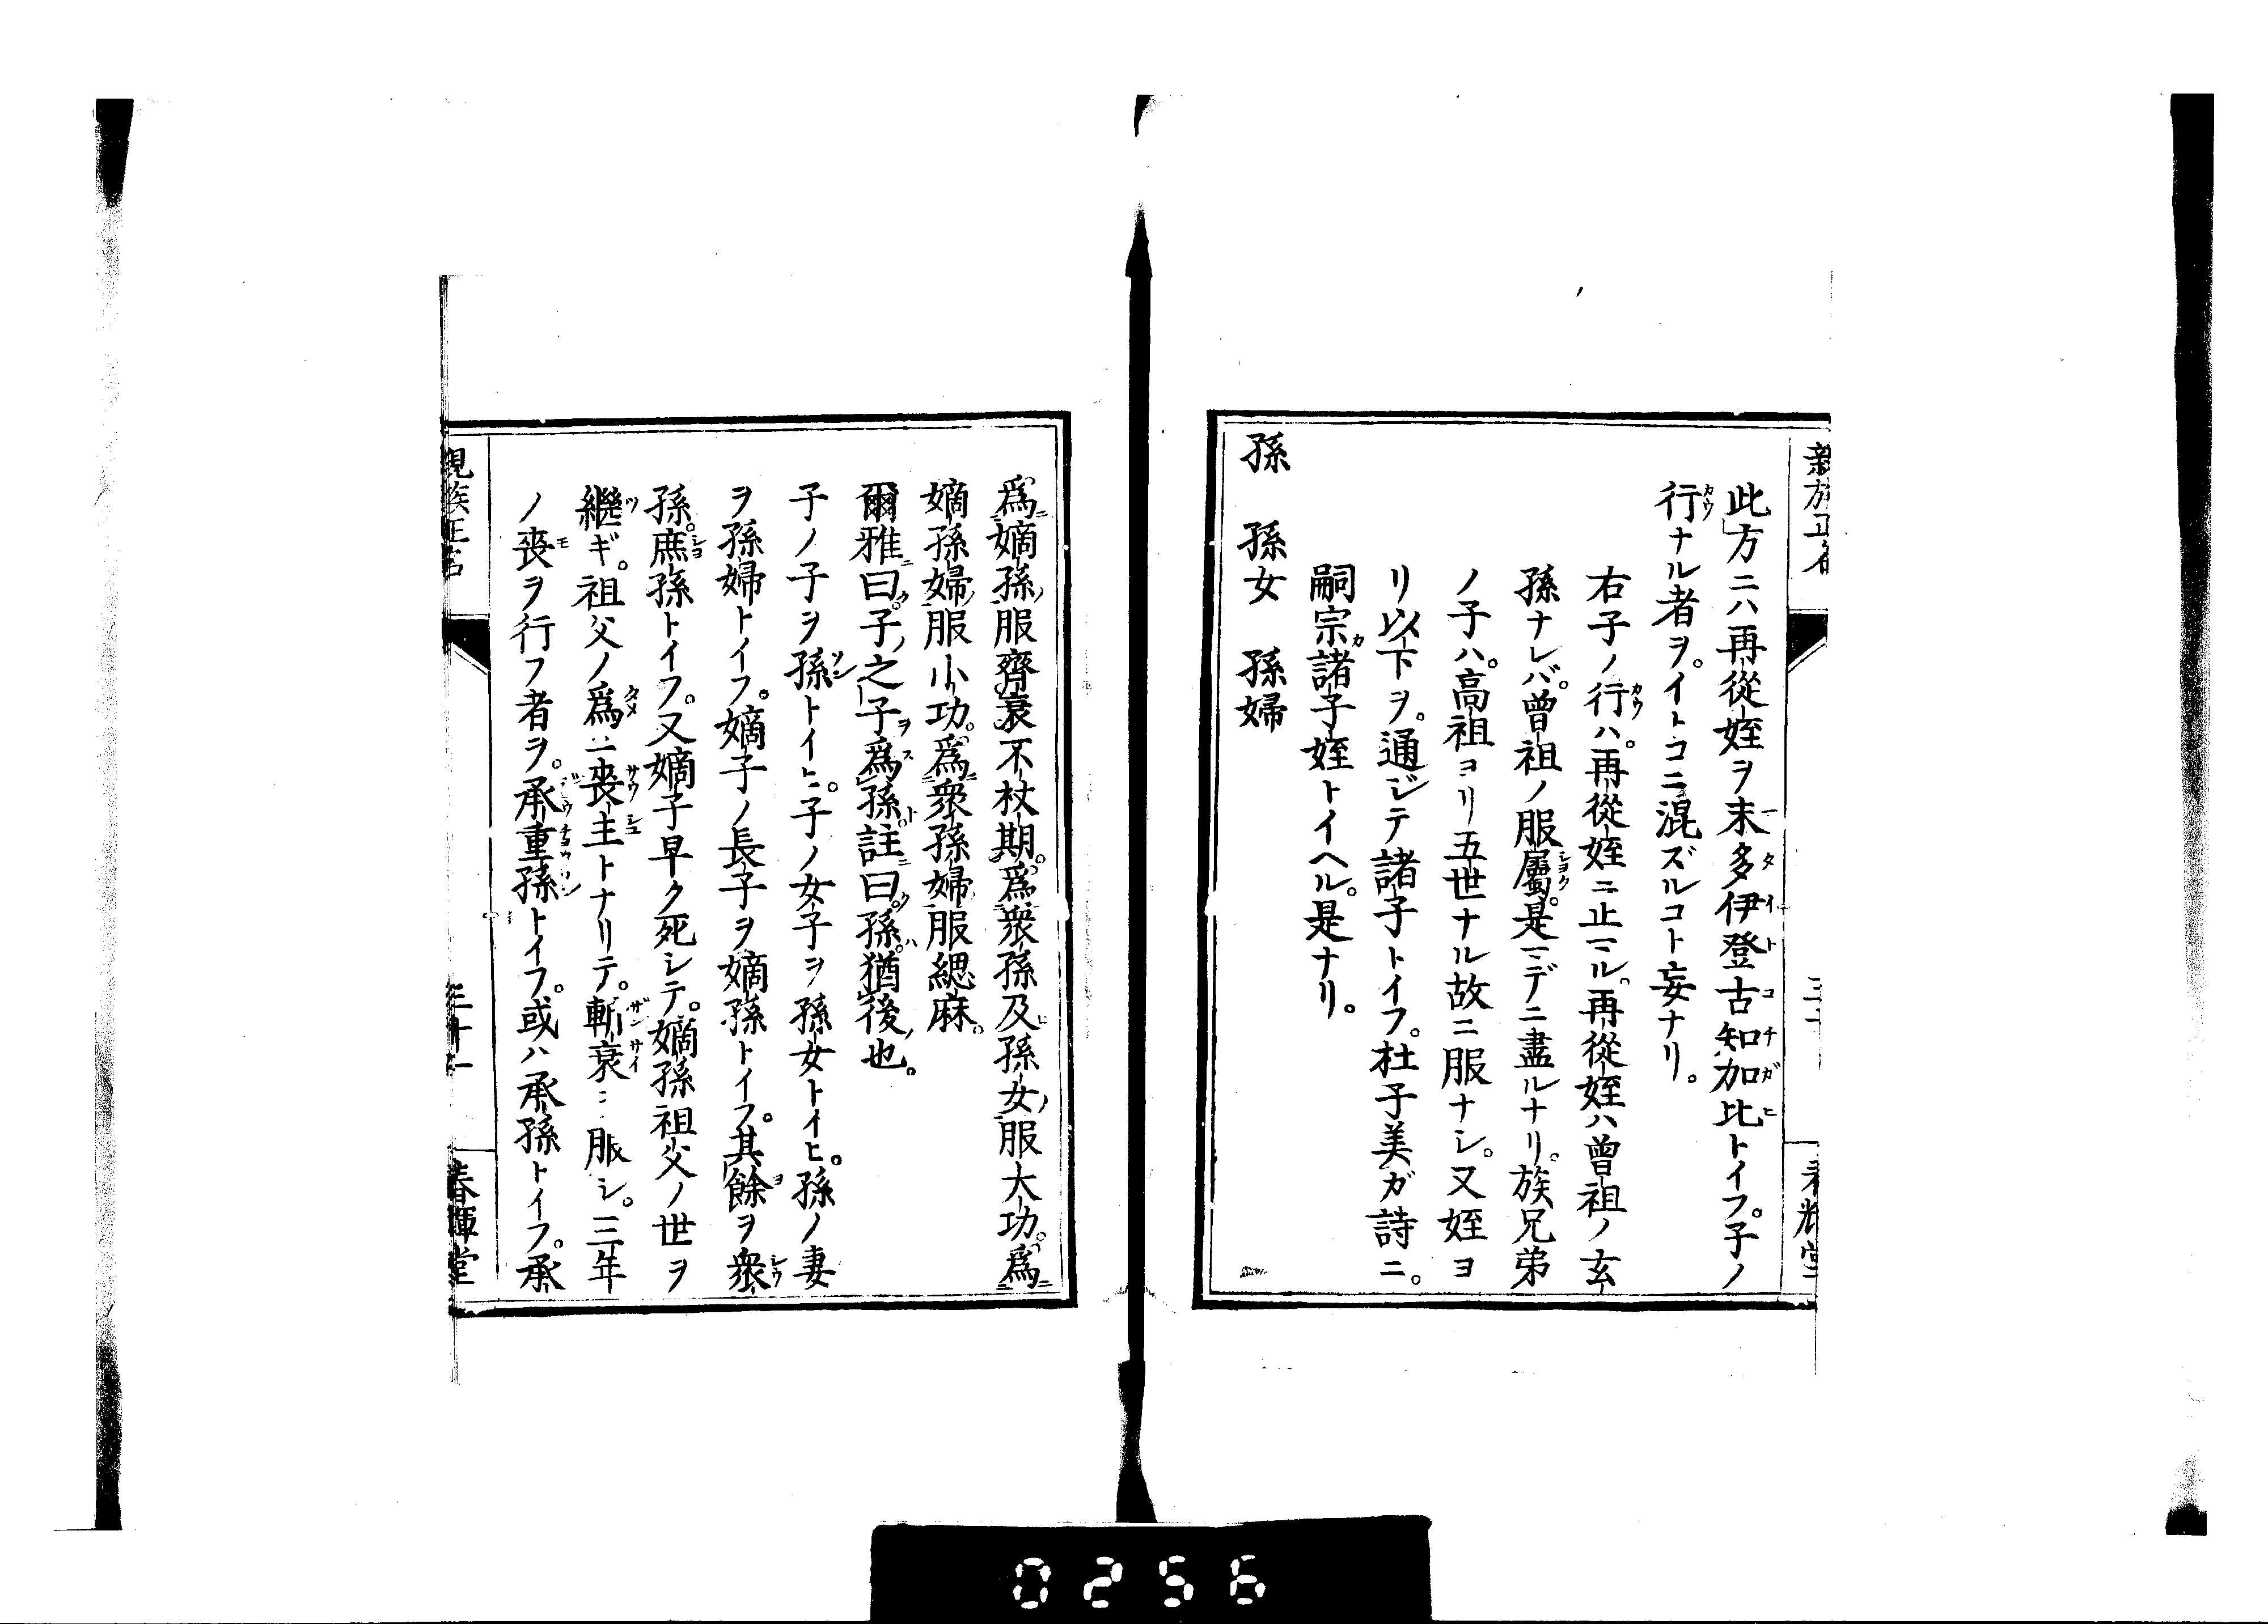 此方ニハ再從姪ヲ末多伊登古知加比トイフ。子ノ
行ナル者ヲ。イトコニ混ズルコト妄ナリ。
右子ノ行ハ。再從姪ニ止マル。再從姪ハ曾祖ノ玄
孫ナレバ。曾祖ノ服屬。是マデニ盡ルナリ。族兄弟
ノ子ハ。高祖ヨリ五世ナル故ニ服ナシ。又姪ヨ
リ以下ヲ。通ジテ諸子トイフ。杜子美ガ詩ニ。
嗣宗諸子姪トイヘル。是ナリ。
孫 孫女 孫婦
爲嫡孫服齊衰不杖期。爲衆孫及孫女服大功。爲
嫡孫婦服小功。爲衆孫婦服緦麻。
爾雅曰。子之子爲孫。註曰。孫。猶後也。
子ノ子ヲ孫トイヒ。子ノ女子ヲ孫女トイヒ。孫ノ妻
ヲ孫婦トイフ。嫡子ノ長子ヲ嫡孫トイフ。其餘ヲ衆
孫。庶孫トイフ。又嫡子早ク死シテ。嫡孫祖父ノ世ヲ
繼ギ。祖父ノ爲ニ喪主トナリテ。斬衰ニ服シ。三年
ノ喪ヲ行フ者ヲ。承重孫トイフ。或ハ承孫トイフ。承
親族正名
三十一
春暉堂
0256